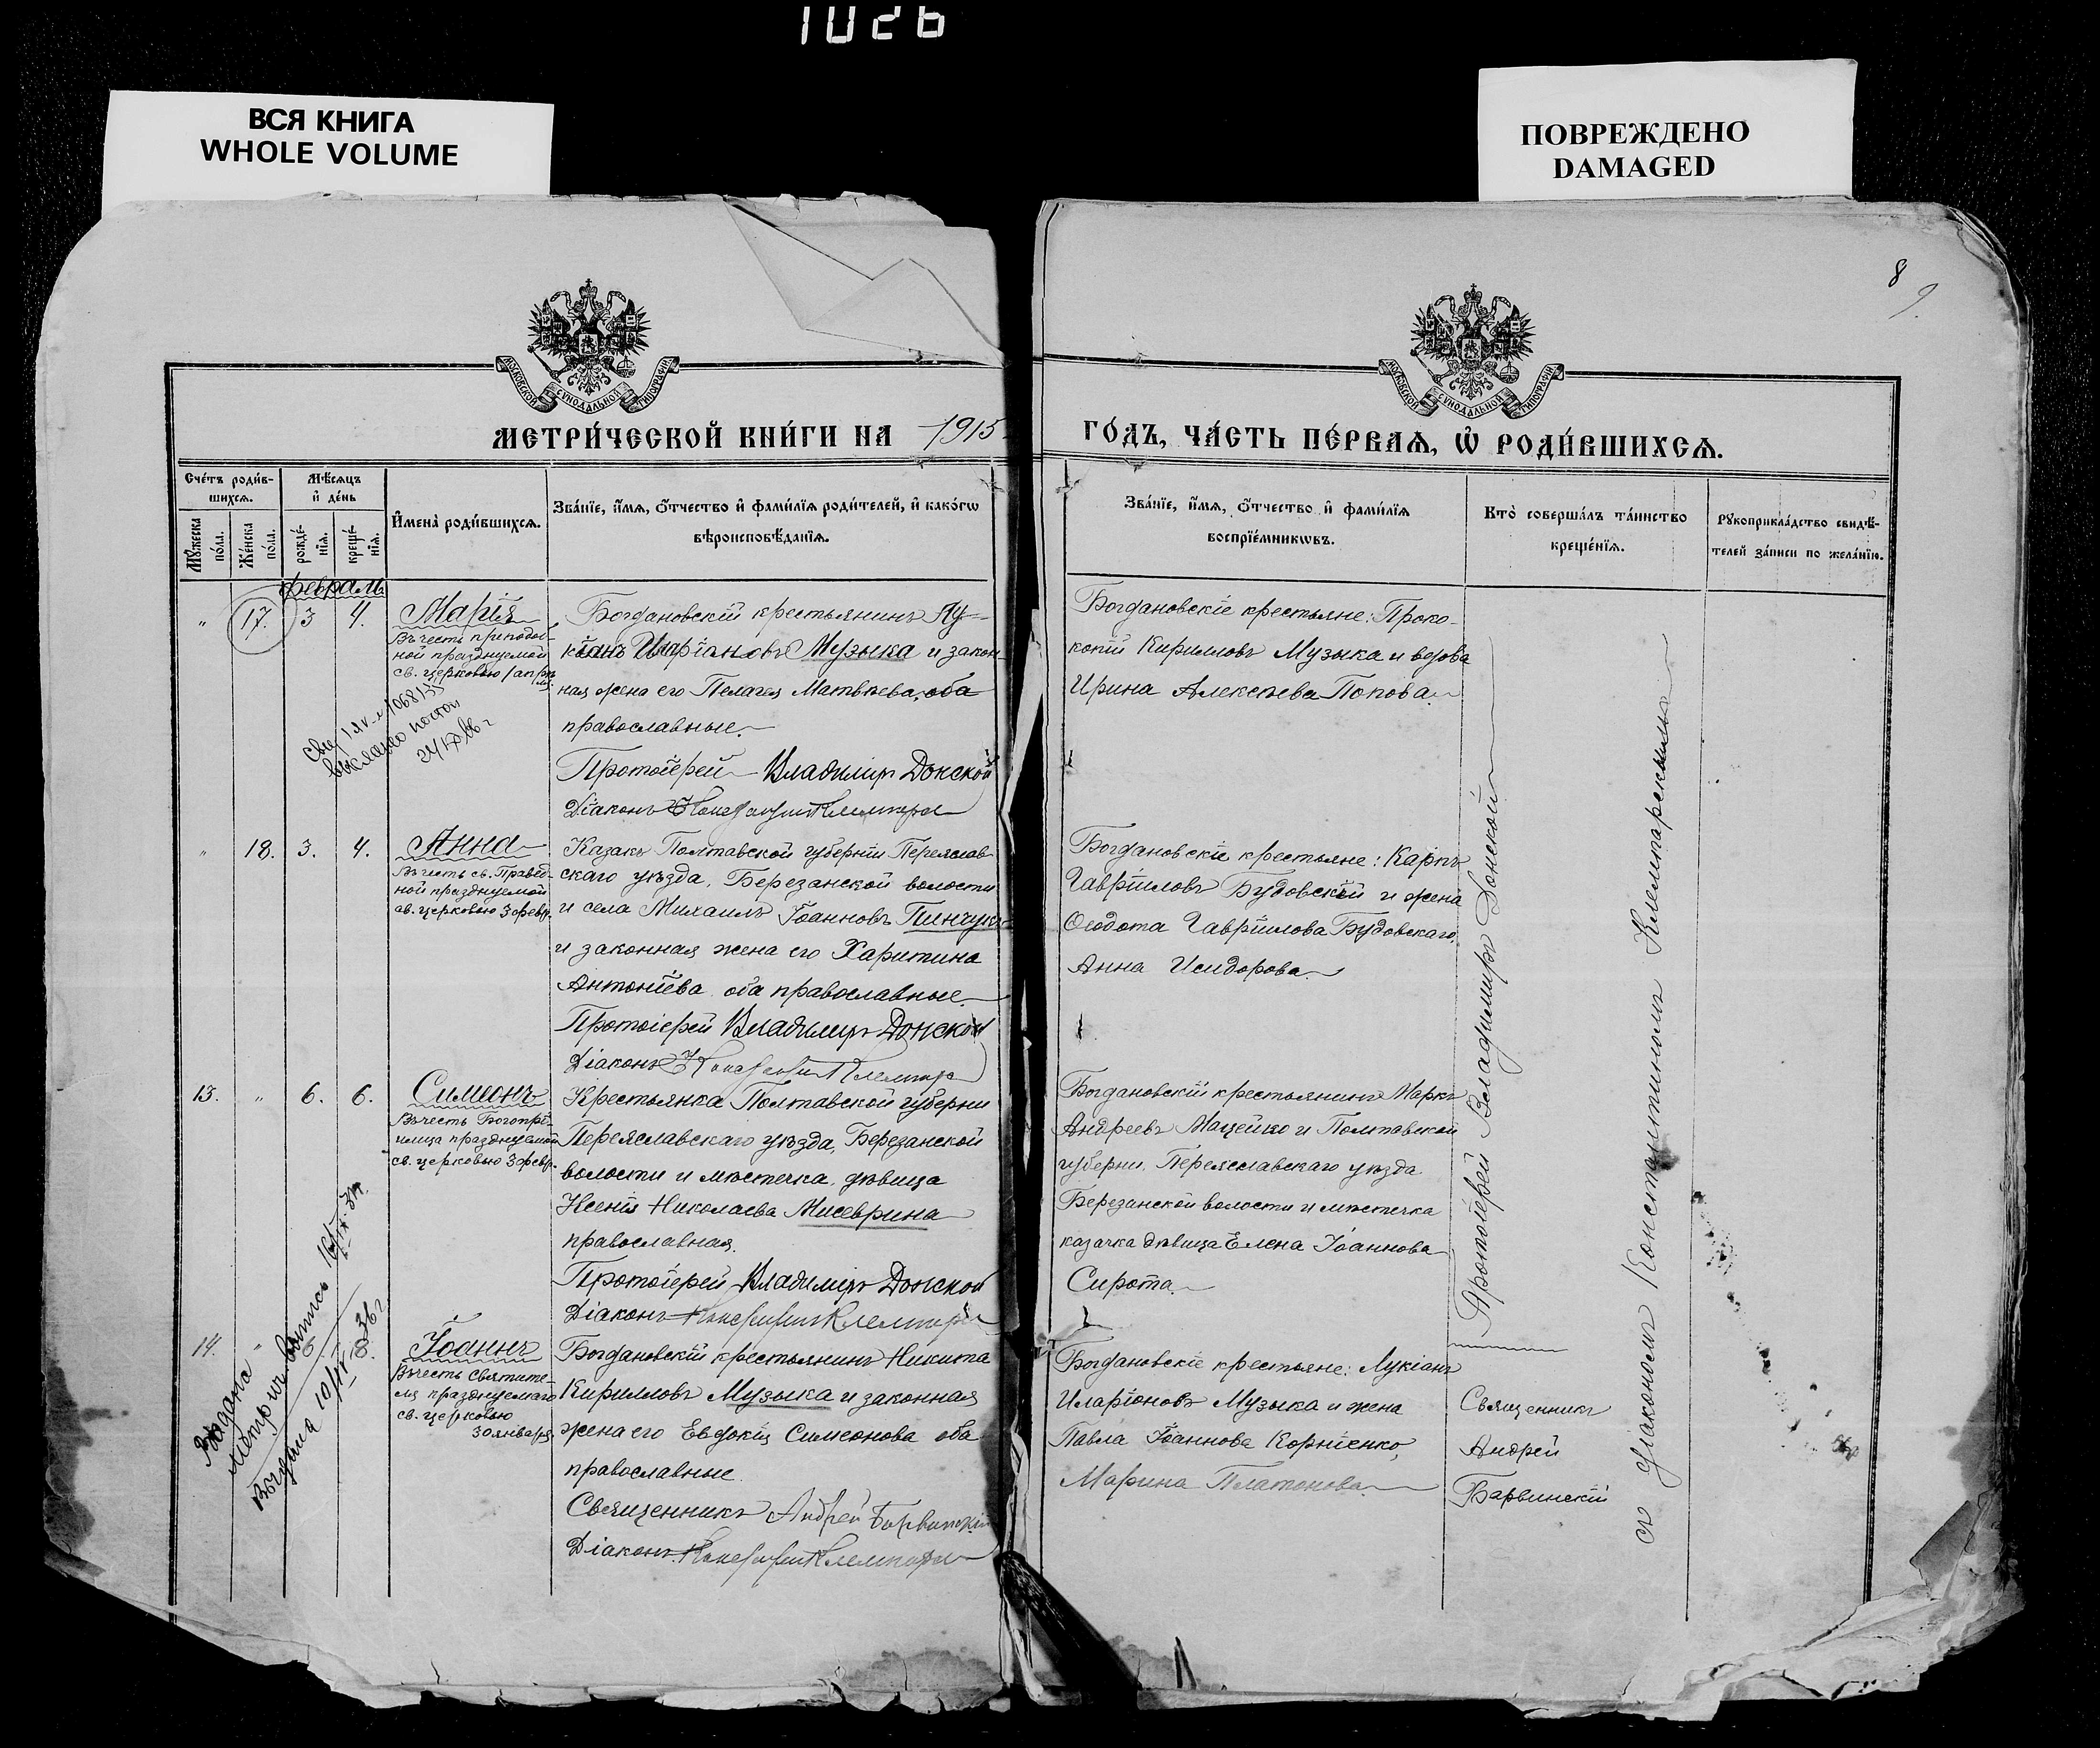 1026
ВСЯ КНИГА
WHOLE VOLUME
ПОВРЕЖДЕНО
DAMAGED
8
9
МОСКОВСКОЙ СѴНОДАЛЬНОЙ ТИПОГРАФІИ
МОСКОВСКОЙ СѴНОДАЛЬНОЙ ТИПОГРАФІИ
МЕТРИ́ЧЕСКОЙ КНИ́ГИ НА 1915
ГО́ДЪ, ЧА́СТЬ ПЕ́РВАѦ, Ѡ РОДИ́ВШИХСѦ.
Сче́тъ роди́в-
шихсѧ.
Мѣ́сѧцъ
и҆ де́нь
Мꙋ́жеска
по́ла.
Же́нска
по́ла.
рожде́-
нїѧ.
креще́-
нїѧ.
И҆мена̀ роди́вшихсѧ.
Зва́нїе, и҆́мѧ, ѻ҆́тчество и҆ фами́лїѧ роди́телей, и҆ како́гѡ
вѣроисповѣ́данїѧ.
Зва́нїе, и҆́мѧ, ѻ҆́тчество и҆ фами́лїѧ
воспрїе́мникѡвъ.
Кто̀ соверша́лъ та́инство
креще́нїѧ.
Рꙋкоприкла́дство свидѣ́-
телей за́писи по жела́нїю.
февраль
" 17. 3 4. Марія
Въ честь преподоб-
ной празднуемой
св. церковью 1 апрѣ
ля
24/IX 66 г
Богдановскій крестьянинъ Лу-
кіанъ Иларіановъ Музыка и закон-
ная жена его Пелагея Матвѣева, оба
православные.
Протоіерей Владиміръ Донской
Діаконъ
Богдановскіе крестьяне: Проко-
пій Кирилловъ Музыка и вдова
Ирина Алексѣева Попова.
" 18. 3. 4. Анна
Въ честь св. Правед-
ной празднуемой
св. церковью 3 февр.
Казакъ Полтавской губерніи Переяслав
скаго уѣзда, Березанской волости
и села Михаилъ Іоанновъ Пинчукъ
и законная жена его Харитина
Антоніева оба православные.
Протоіерей Владиміръ Донской
Діаконъ
Богдановскіе крестьяне: Карпъ
Гавріиловъ Будовскій и жена
Ѳеодота Гавріилова Будовскаго,
Анна Исидорова.
13. " 6. 6. Симеонъ
Въ честь Богопрі-
имца празднуемой
св. церковью 3 февр.
Крестьянка Полтавской губерни
Переяславскаго уѣзда, Березанской
волости и мѣстечка, дѣвица
Ксенія Николаева Мисеврина
православная.
Протоіерей Владиміръ Донской
Діаконъ
Богдановскій крестьянинъ Маркъ
Андреевъ Мацейко и Полтавской
губерни, Переяславскаго уѣзда
Березанской волости и мѣстечка
казачка дѣвица Елена Іоаннова
Сирота.
14. " 6. 8. Іоаннъ
Въ честь Святите-
ля празднуемаго
св. церковью
30 января.
Выдана
Выдана 10/IV 36 г
Богдановскій крестьянинъ Никита
Кирилловъ Музыка и законная
жена его Евдокія Симеонова оба
православные.
Священникъ Андрей Барвинскій
Діаконъ
Богдановскіе крестьяне: Лукіанъ
Иларіоновъ Музыка и жена
Павла Іоаннова Корніенко,
Марина Платонова
Протоіерей Владиміръ Донской
Священникъ
Андрей
Барвинскій
съ діакономъ Константиномъ Клемпарскимъ